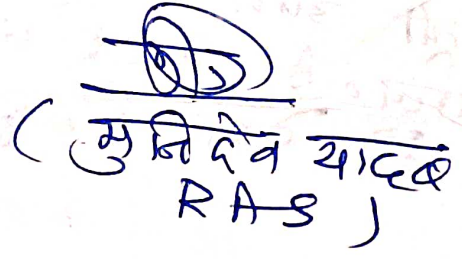 ( मुनिदेव यादव
RAS )